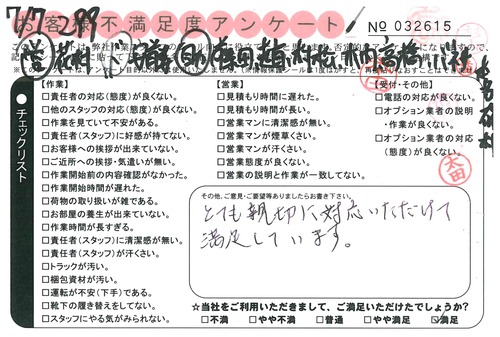 7/7 299
お客様不満足度アンケート
No 032615
チェックリスト
【作業】
□責任者の対応(態度)が良くない。
□他のスタッフの対応(態度)が良くない。
□作業を見ていて不安がある。
□責任者(スタッフ)に好感が持てない。
□お客様への挨拶が出来ていない。
□ご近所への挨拶・気遣いが無い。
□作業開始前の内容確認がなかった。
□作業開始時間が遅れた。
□荷物の取り扱いが雑である。
□お部屋の養生が出来ていない。
□作業時間が長すぎる。
□責任者(スタッフ)に清潔感が無い。
□責任者(スタッフ)が汗くさい。
□トラックが汚い。
□梱包資材が汚い。
□運転が不安(下手)である。
□靴下の履き替えをしてない。
□スタッフにやる気がみられない。
【営業】
□見積もり時間に遅れた。
□見積もり時間が長い。
□営業マンに清潔感が無い。
□営業マンが煙草くさい。
□営業マンが汗くさい。
□営業態度が良くない。
□営業の説明と作業が一致してない。
【受付・その他】
□電話の対応が良くない。
□オプション業者の説明
・作業が良くない。
□オプション業者の対応
(態度)が良くない。
太田
その他、ご意見・ご要望等ありましたらお書き下さい。
とても親切に対応いただけて
満足しています。
☆当社をご利用いただきまして、ご満足いただけたでしょうか?
□不満 □やや不満 □普通 □やや満足 ☑満足